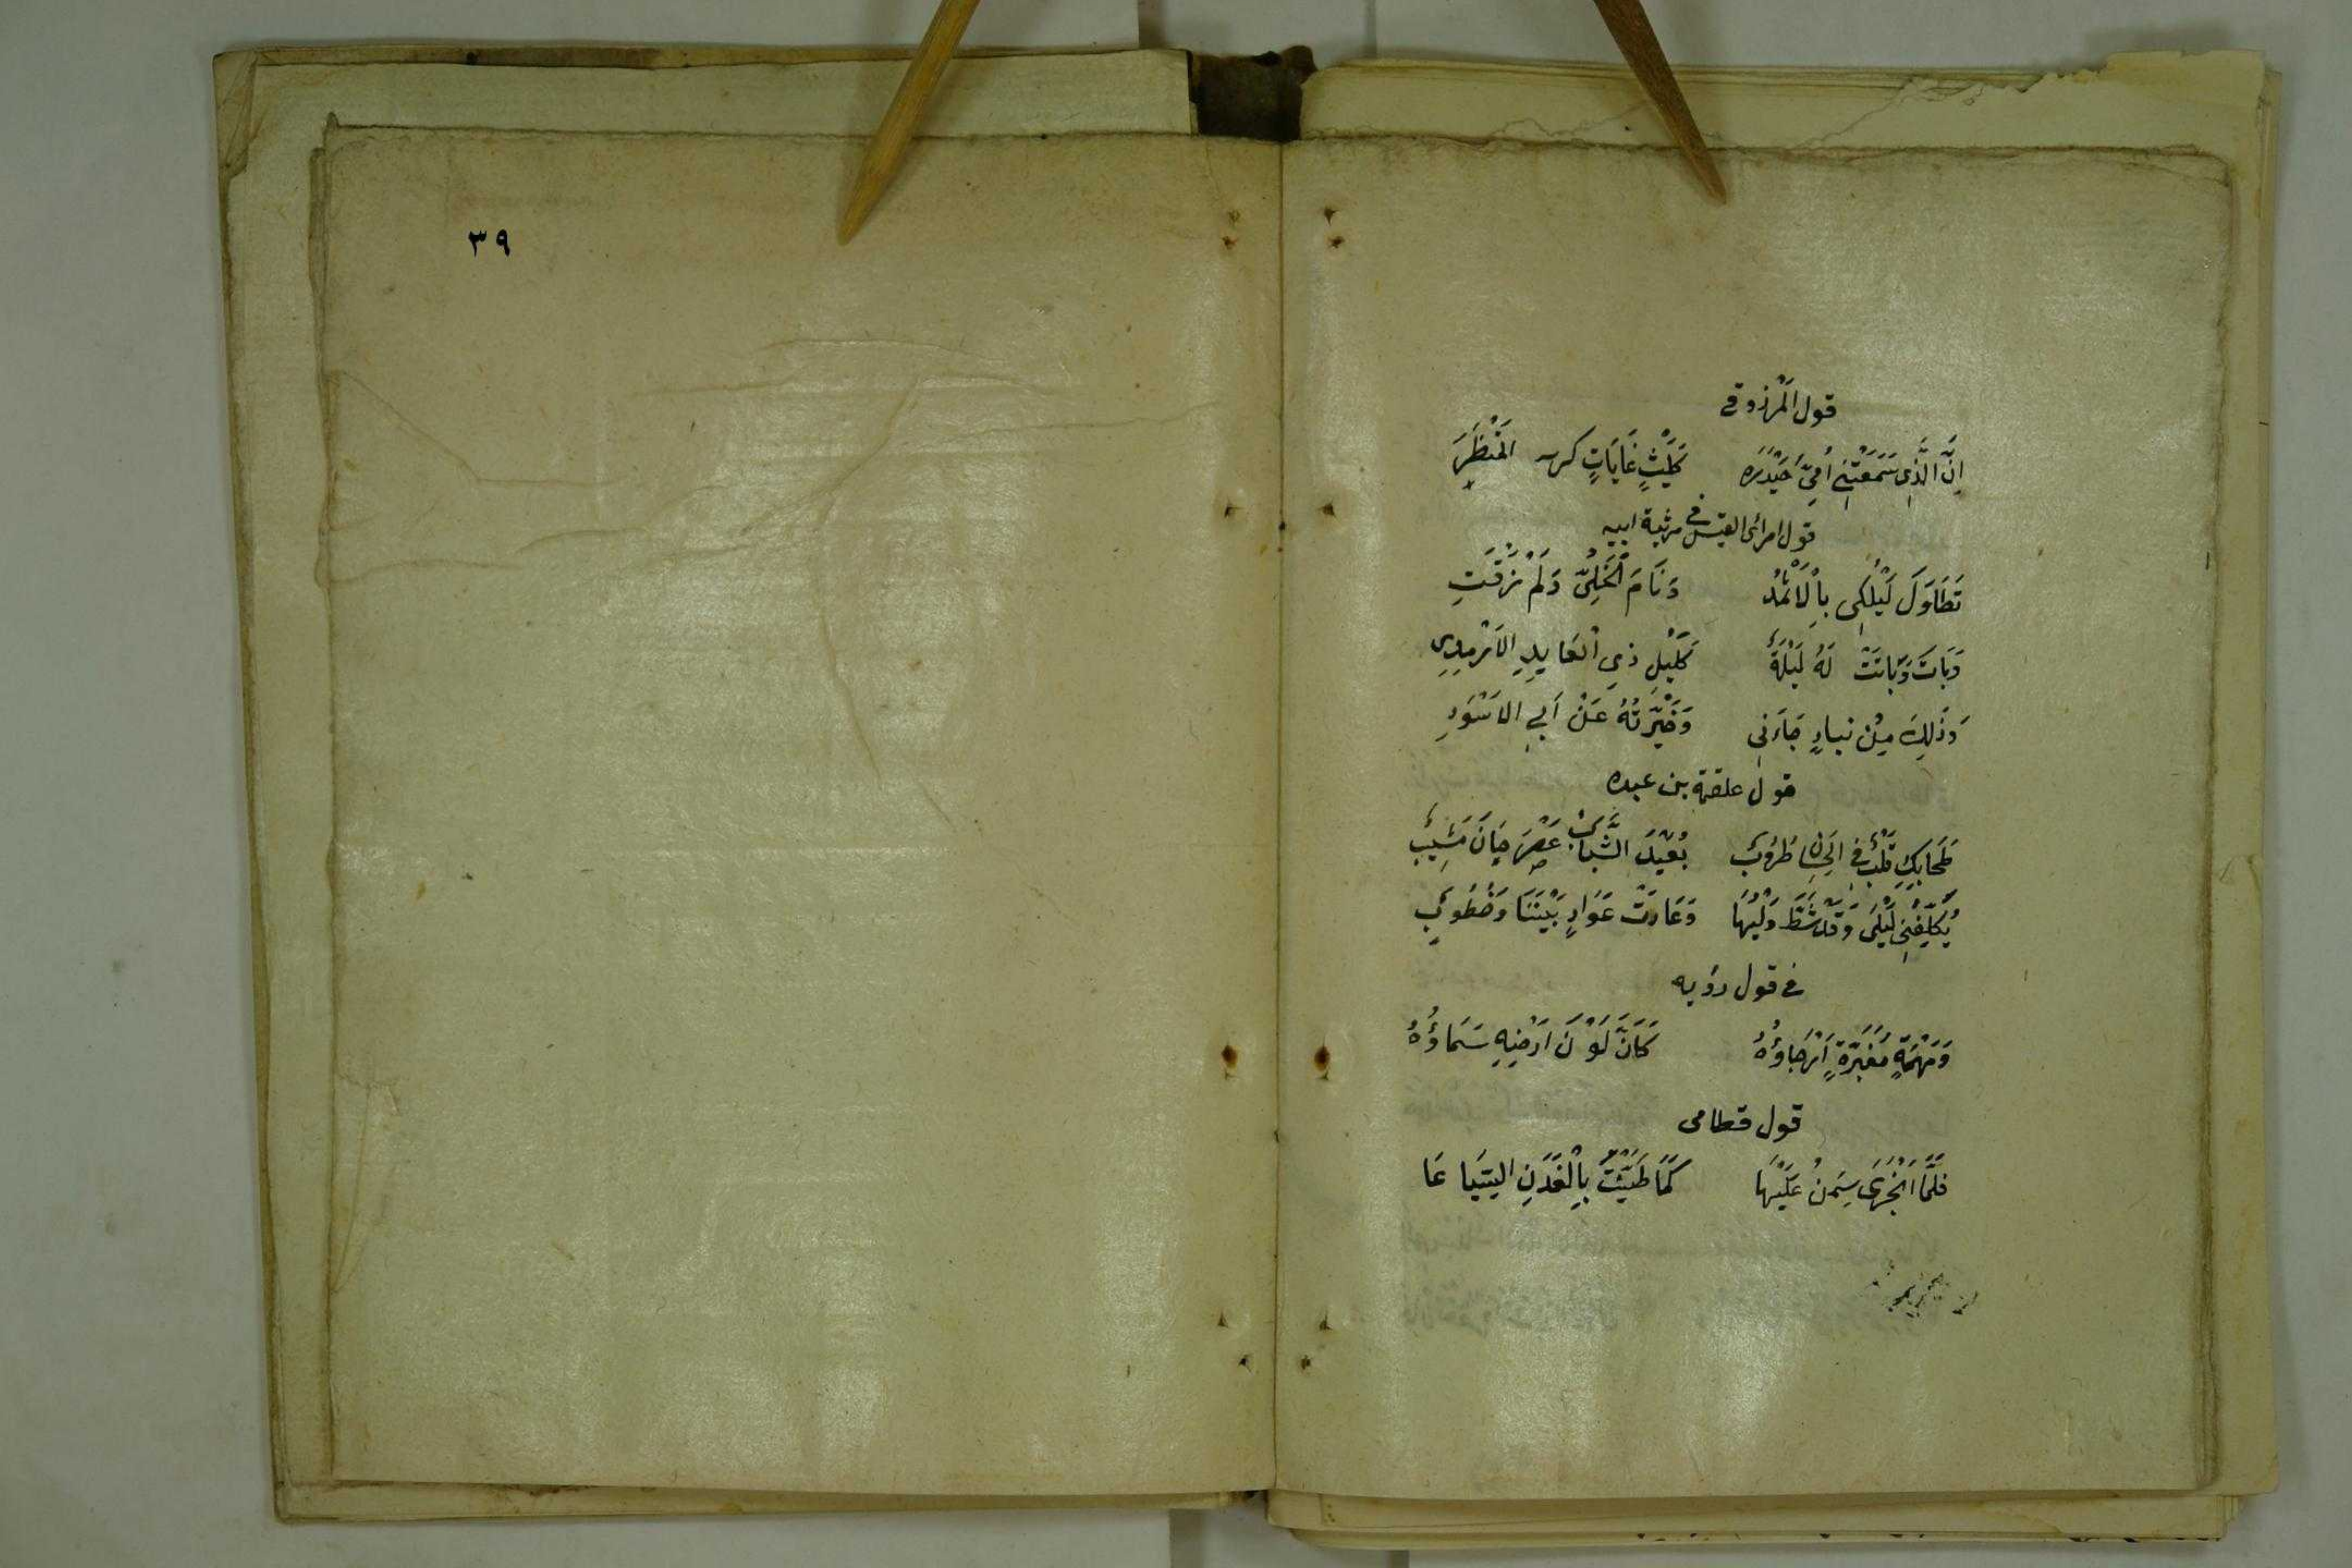 قول المرزوقی
اِنَّ الَّذِی سَمَّعْتَنِی اُمِّی حَیْدَرَه كَلَیْثِ غَابَاتٍ كریه المَنْظَرَ
قول امرائ القیس فی مرثیة ابیه
تَطَاوَلَ لَیْلُكِی بِاْلَاثْمُدُ وَنَامَ الْخَلِیّ وَلَمْ تَرْقَتِ
وَبَاتَ وَبَاتَتْ لَهُ لَیْلَةٌ كَلَیْلِ ذِی الْعَایِدِ الاَرْمِدِی
وَذَلِكَ مِنْ نباءٍ جَاءَنِی وَخَبَّرْتُهُ عَنْ اَبِی الاَسْوَدِ
قول علقمة بن عبده
طَحَابِكِ قَلْبٌ فِی الِحسَانِ طَرُوبٌ بُعَیْدَ الشَّبَابْ عَصْرَ حَانَ مَشِیْبٌ
یُكَلِّفُنِی لَیْلَی وَقَدْ شَطَّ وَلْیُهَا وَعَادَتْ عَوَادٍ بَیْنَنَا وَخُطُوبٌ
فی قول رؤبه
وَمَهْمَةٍ مُغْبَرَّةٍ اَرْجَاؤُهُ كَاَنَّ لَوْنَ اَرْضِهِ سَمَاؤُهُ
قول قطامی
فَلَمَّا اَنْجَرَی سِمَنُ عَلَیْهَا كَمَا طَیَّنْتَ بِالْفَدَنِ السِّیَا عَا
٣٩